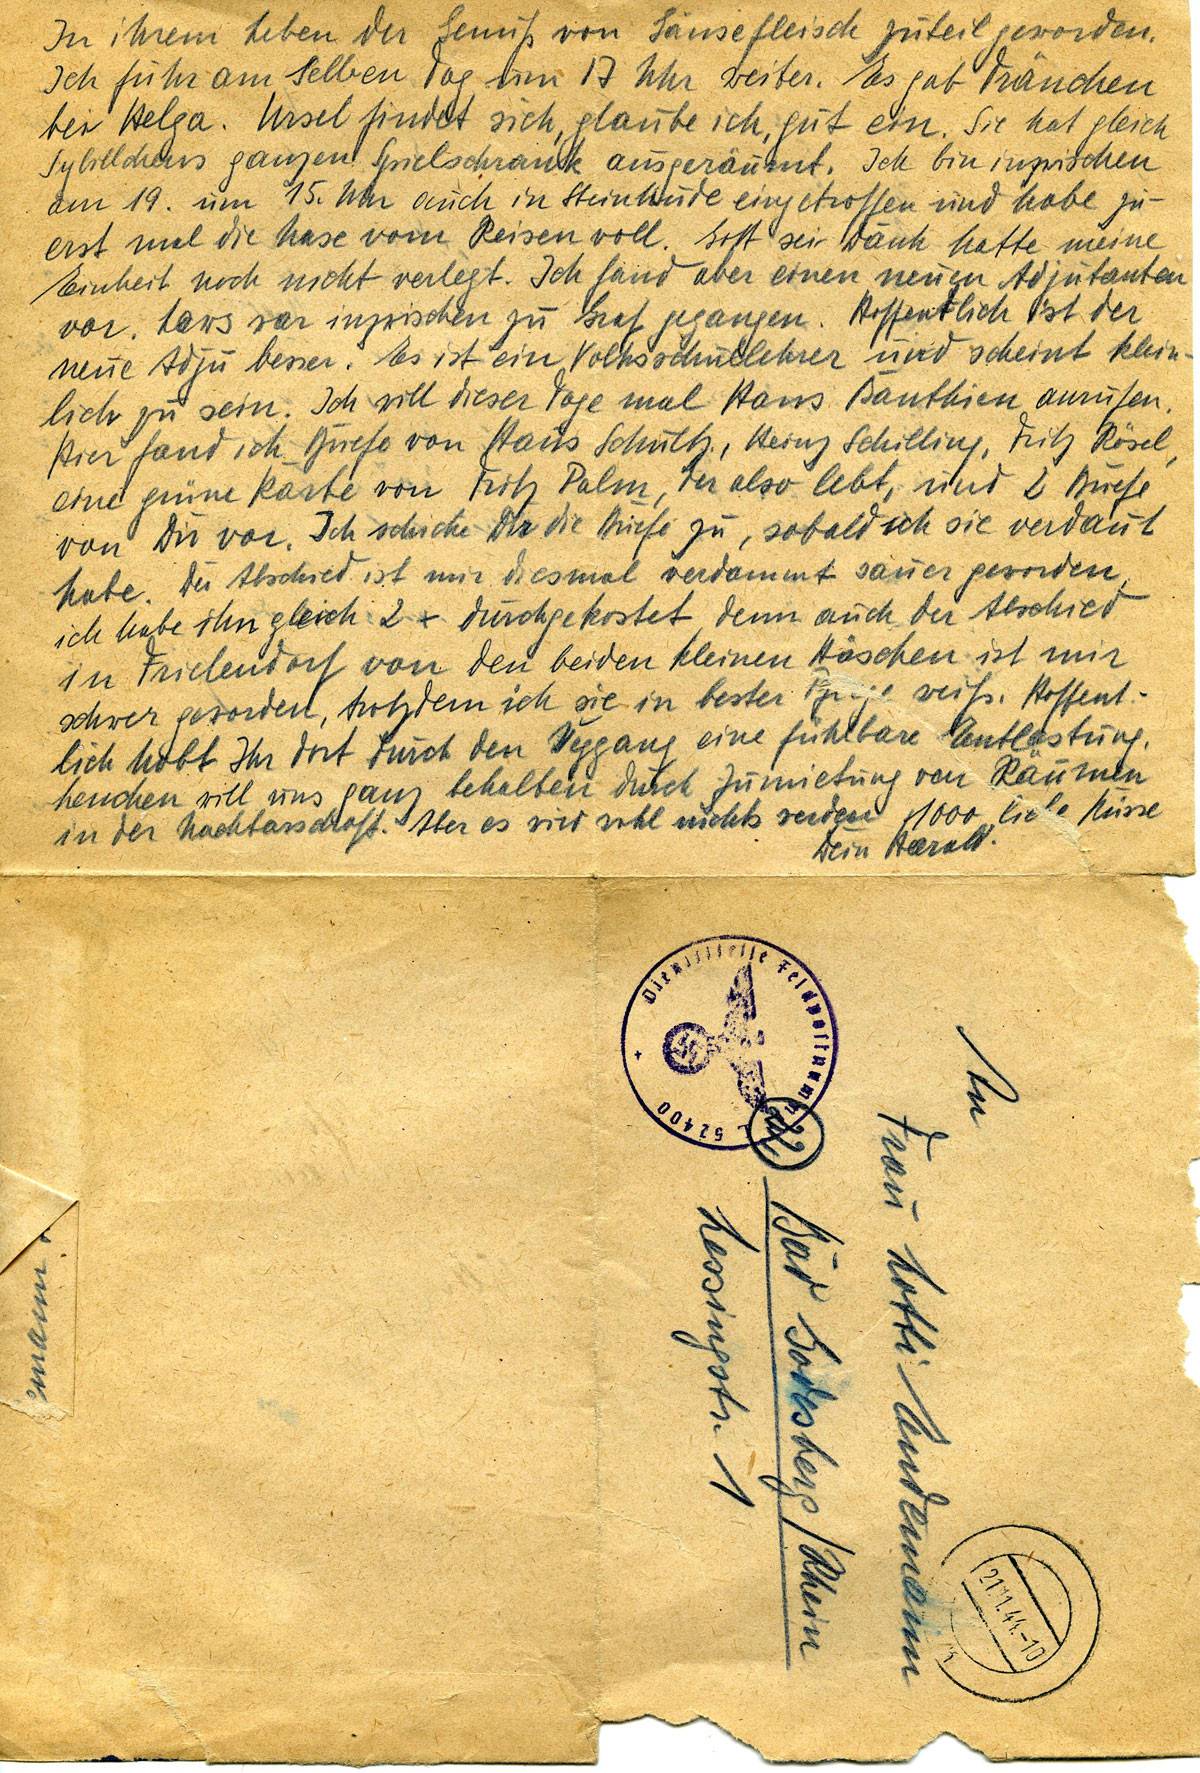 In ihrem Leben der Genuß von Gänsefleisch zuteil geworden.
Ich fuhr am selben Tag um 17 Uhr weiter. Es gab Tränchen
bei Helga. Ursel findet sich, glaube ich, gut ein. Sie hat gleich
Sybillchens ganzen Spielschrank ausgeräumt. Ich bin inzwischen
am 19. um 15. Uhr auch in Steinhude eingetroffen und habe zu-
erst mal die Nase vom Reisen voll. Gott sei Dank hatte meine
Einheit noch nicht verlegt. Ich fand aber einen neuen Adjutanten
vor. war inzwischen zu Graf gegangen. Hoffentlich ist der
neue Adju besser. Es ist ein Volksschullehrer und scheint klein-
lich zu sein. Ich will dieser Tage mal Hans Bänthien anrufen.
Hier fand ich Briefe von Hans Schultz, Heinz Schilling, Fritz Rösel,
eine grüne Karte von Fritz Palm, der also lebt, und 2 Briefe
von Dir vor. Ich schicke Dir die Briefe zu, sobald ich sie verdaut
habe. Der Abschied ist mir diesmal verdammt sauer geworden,
ich habe ihn gleich 2 x durchgekostet, denn auch der Abschied
in Frielendorf von den beiden kleinen Häschen ist mir
schwer geworden, trotzdem ich sie in bester Pflege weiß. Hoffent-
lich habt Ihr dort durch den Weggang eine fühlbare Entlastung.
Lenchen will uns ganz behalten durch Zumietung von Räumen
in der Nachbarschaft. Aber es wird wohl nichts werden. 1000 liebe Küsse
Dein Harald.
Dienststelle Feldpostnummer
L 52400
An
Frau Lotti Andemann
22 Bad Godesberg/Rhein
Lessingstr. 1
21.11.44.-10
emann.